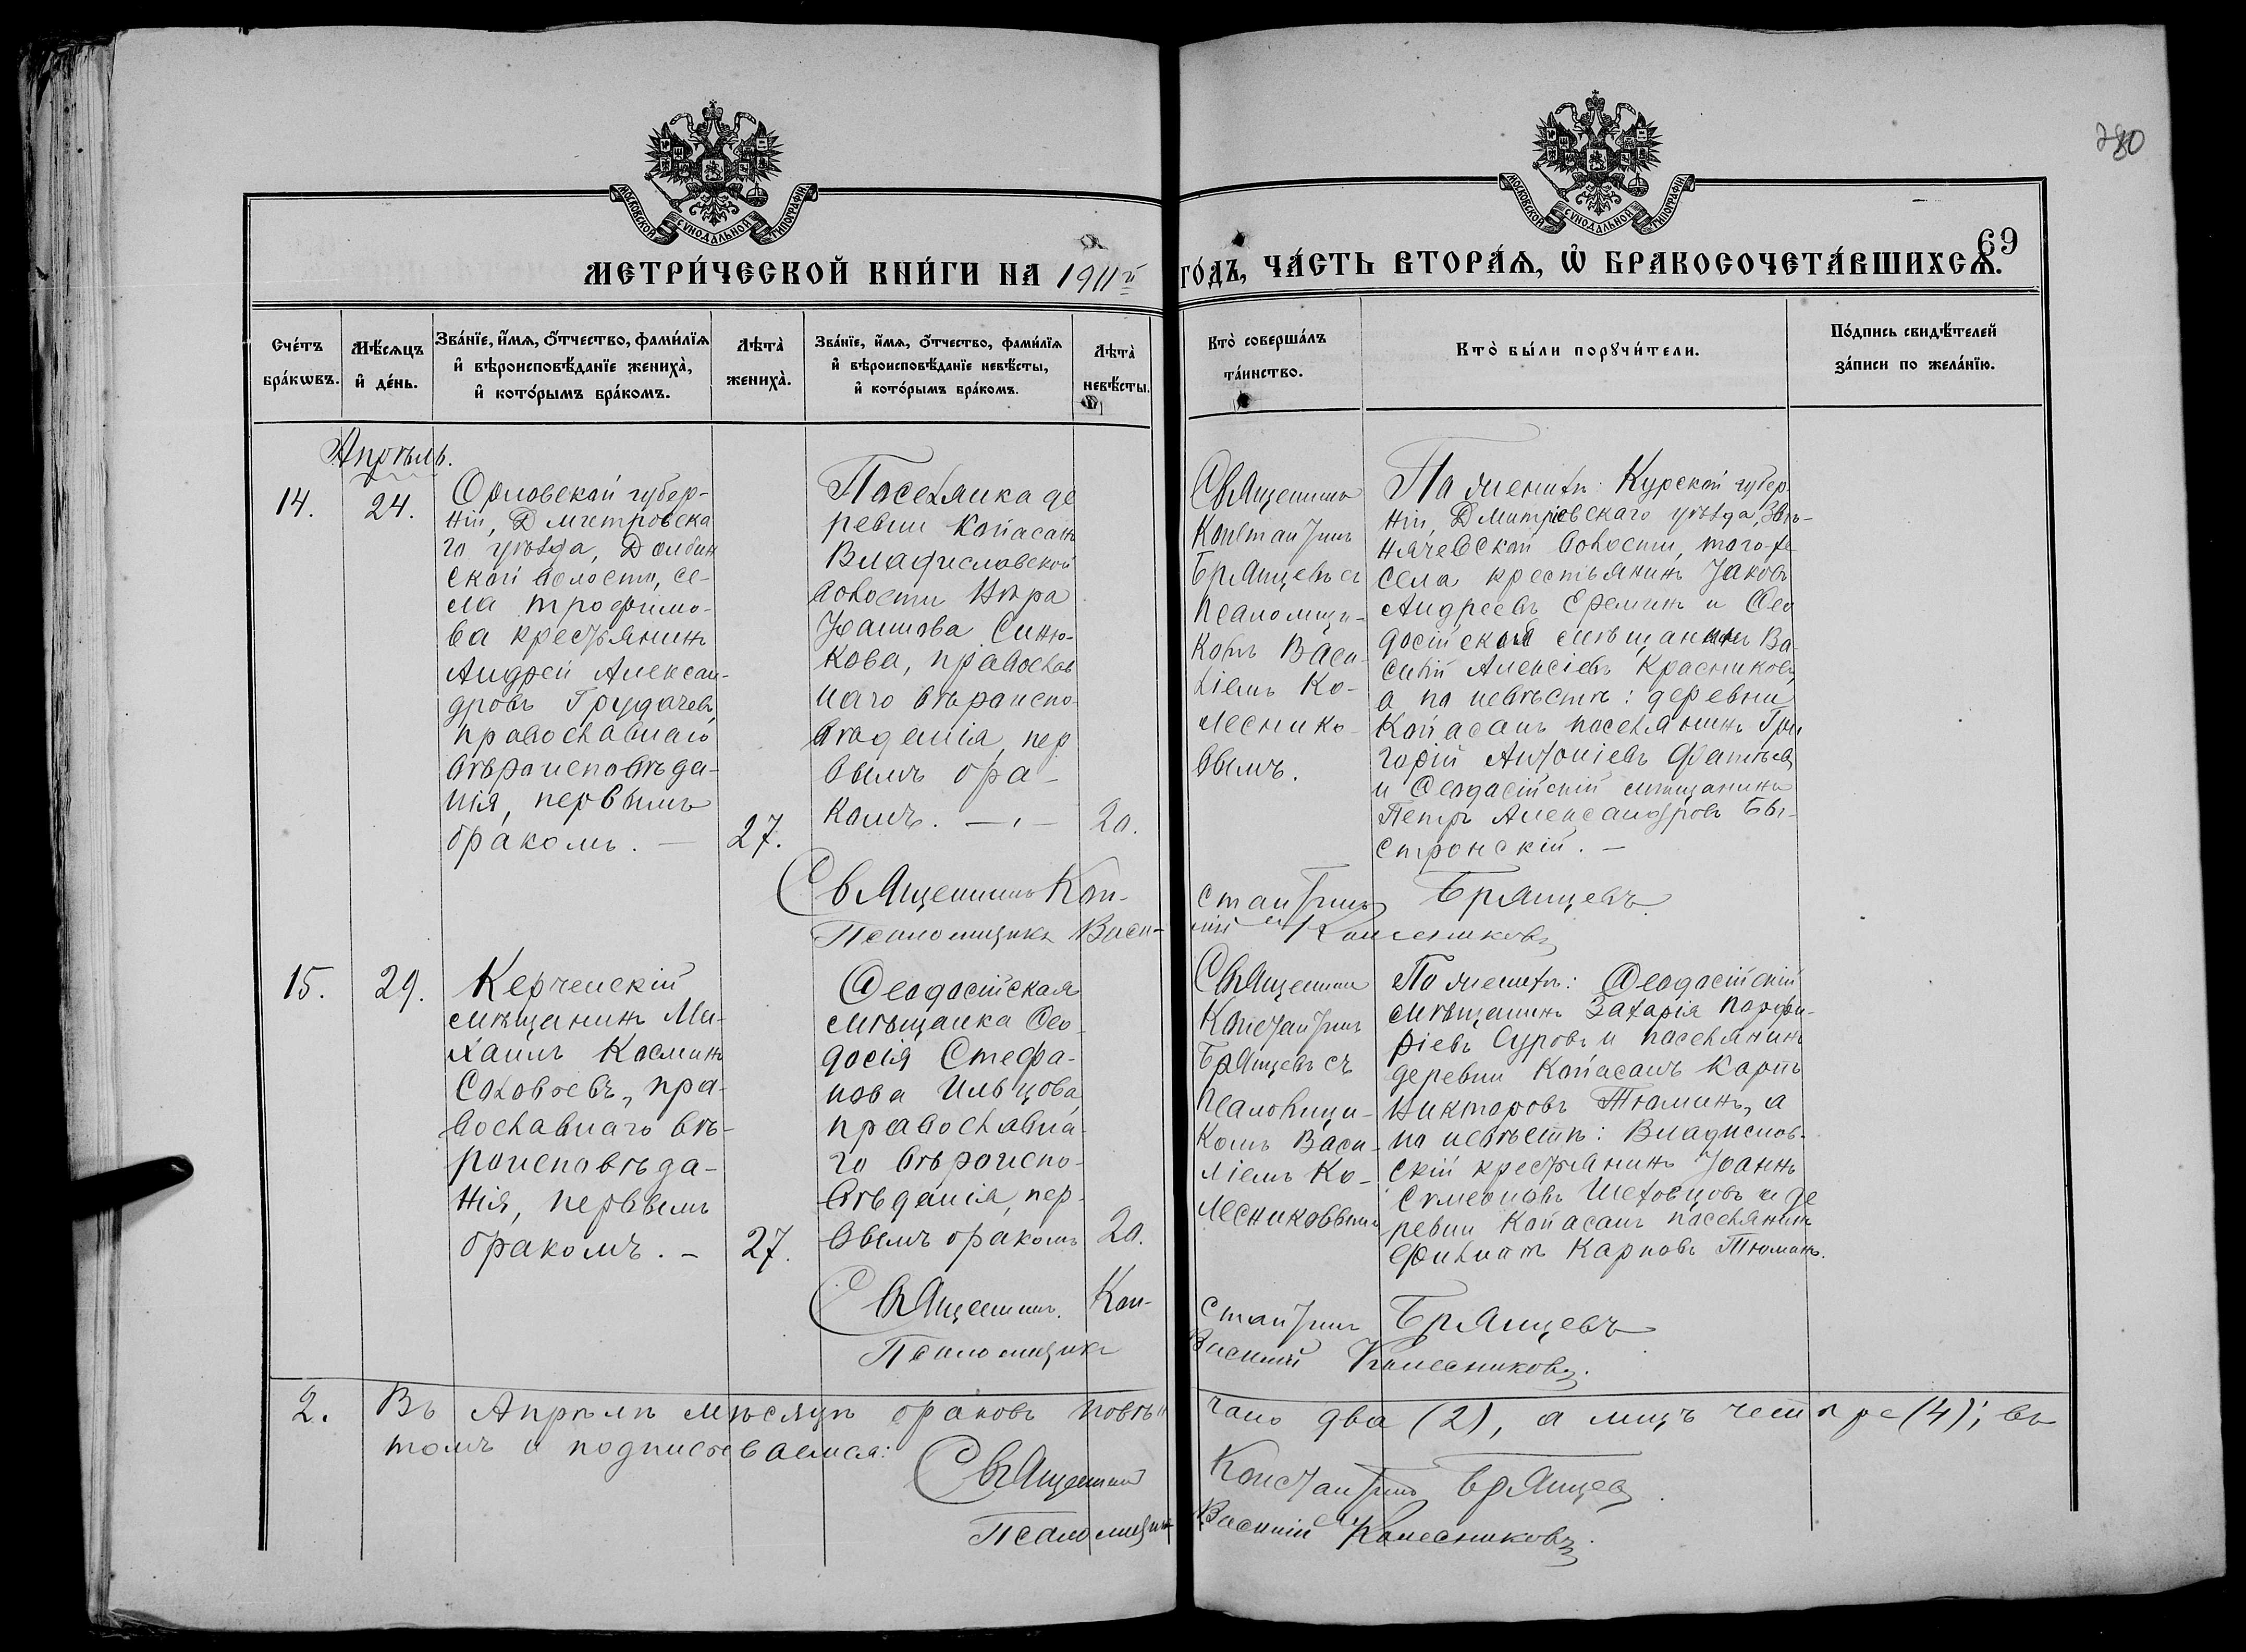 280
69
МОСКОВСКОЙ СѴНОДАЛЬНОЙ ТИПОГРАФІИ
МОСКОВСКОЙ СѴНОДАЛЬНОЙ ТИПОГРАФІИ
МЕТРИ́ЧЕСКОЙ КНИ́ГИ НА 1911й ГО́ДЪ, ЧА́СТЬ ВТОРА́Ѧ, Ѽ БРАКОСОЧЕТА́ВШИХСѦ.
Сче́тъ
бра́кѡвъ.
Мѣ́сѧцъ
и҆ де́нь.
Зва́нїе, и҆́мѧ, ѻ҆́тчество, фами́лїѧ
и҆ вѣроисповѣ́данїе жениха̀,
и҆ кото́рымъ бра́комъ.
Лѣта̀
жениха̀.
Зва́нїе, и҆́мѧ, ѻ҆́тчество, фами́лїѧ
и҆ вѣроисповѣ́данїе невѣ́сты,
и҆ кото́рымъ бра́комъ.
Лѣта̀
невѣ́сты.
Кто̀ соверша́лъ
та́инство.
Кто̀ бы́ли порꙋчи́тели.
По́дпись свидѣ́телей
за́писи по жела́нїю.
Апрѣль.
14.
24.
Орловской губер-
ніи, Дмитровска
го уѣзда, Долбин
ской волости, се-
ла Трофимо-
ва крестьянинъ
Андрей Алексан-
дровъ Грудачевъ,
православнаго
вѣроисповѣда-
нія, первымъ
бракомъ. —
27.
Поселянка де
ревни Копасанъ
Владиславской
волости Вѣра
Іоаннова Синю-
кова, православ
наго вѣроиспо-
вѣданія, пер
вымъ бра-
комъ. —
20.
Священникъ
Константинъ
Брянцевъ съ
псаломщи-
комъ Васи-
ліемъ Ко-
леснико-
вымъ.
По женихѣ: Курской губер-
ніи, Дмитріевскаго уѣзда,
волости, того-же
села крестьянинъ Іаковъ
Андреевъ Ереминъ и Ѳео
досійской мѣщанинъ Ва-
силій Алексіевъ Красниковъ,
а по невѣстѣ: деревни
Копасанъ поселянинъ Гри
горій Антоніевъ Фатѣевъ
и Ѳеодосійскій мѣщанинъ
Петръ Александровъ Бы-
стронскій. —
Священникъ Константинъ Брянцевъ.
Псаломщикъ Василій Колесниковъ
15.
29.
Керченскій
мѣщанинъ Ми-
хаилъ Косминъ
Соловьевъ, пра-
вославнаго вѣ-
роисповѣда-
нія, первымъ
бракомъ. —
27.
Ѳеодосійская
мѣщанка Ѳео-
досія Стефа-
нова Ильцова,
православна-
го вѣроиспо-
вѣданія, пер-
вымъ бракомъ
20.
Священникъ
Константинъ
Брянцевъ съ
псаломщи-
комъ Васи-
ліемъ Ко-
лесниковымъ
По женихѣ: Ѳеодосійскій
мѣщанинъ Захарія Порфи-
ріевъ Суровъ и поселянинъ
деревни Копасанъ Карпъ
Викторовъ Тюминъ, а
по невѣстѣ: Владислав-
скій крестьянинъ Іоаннъ
Симеоновъ Шеховцовъ и де
ревни Копасанъ поселянинъ
Филиппъ Карповъ Тюминъ.
Священникъ Константинъ Брянцевъ
Псаломщикъ Василій Колесниковъ.
2. Въ Апрѣлѣ мѣсяцѣ браковъ повѣнчано два (2), а лицъ четыре (4); въ
томъ и подписываемся:
Священникъ Константинъ Брянцевъ.
Псаломщикъ Василій Колесниковъ.